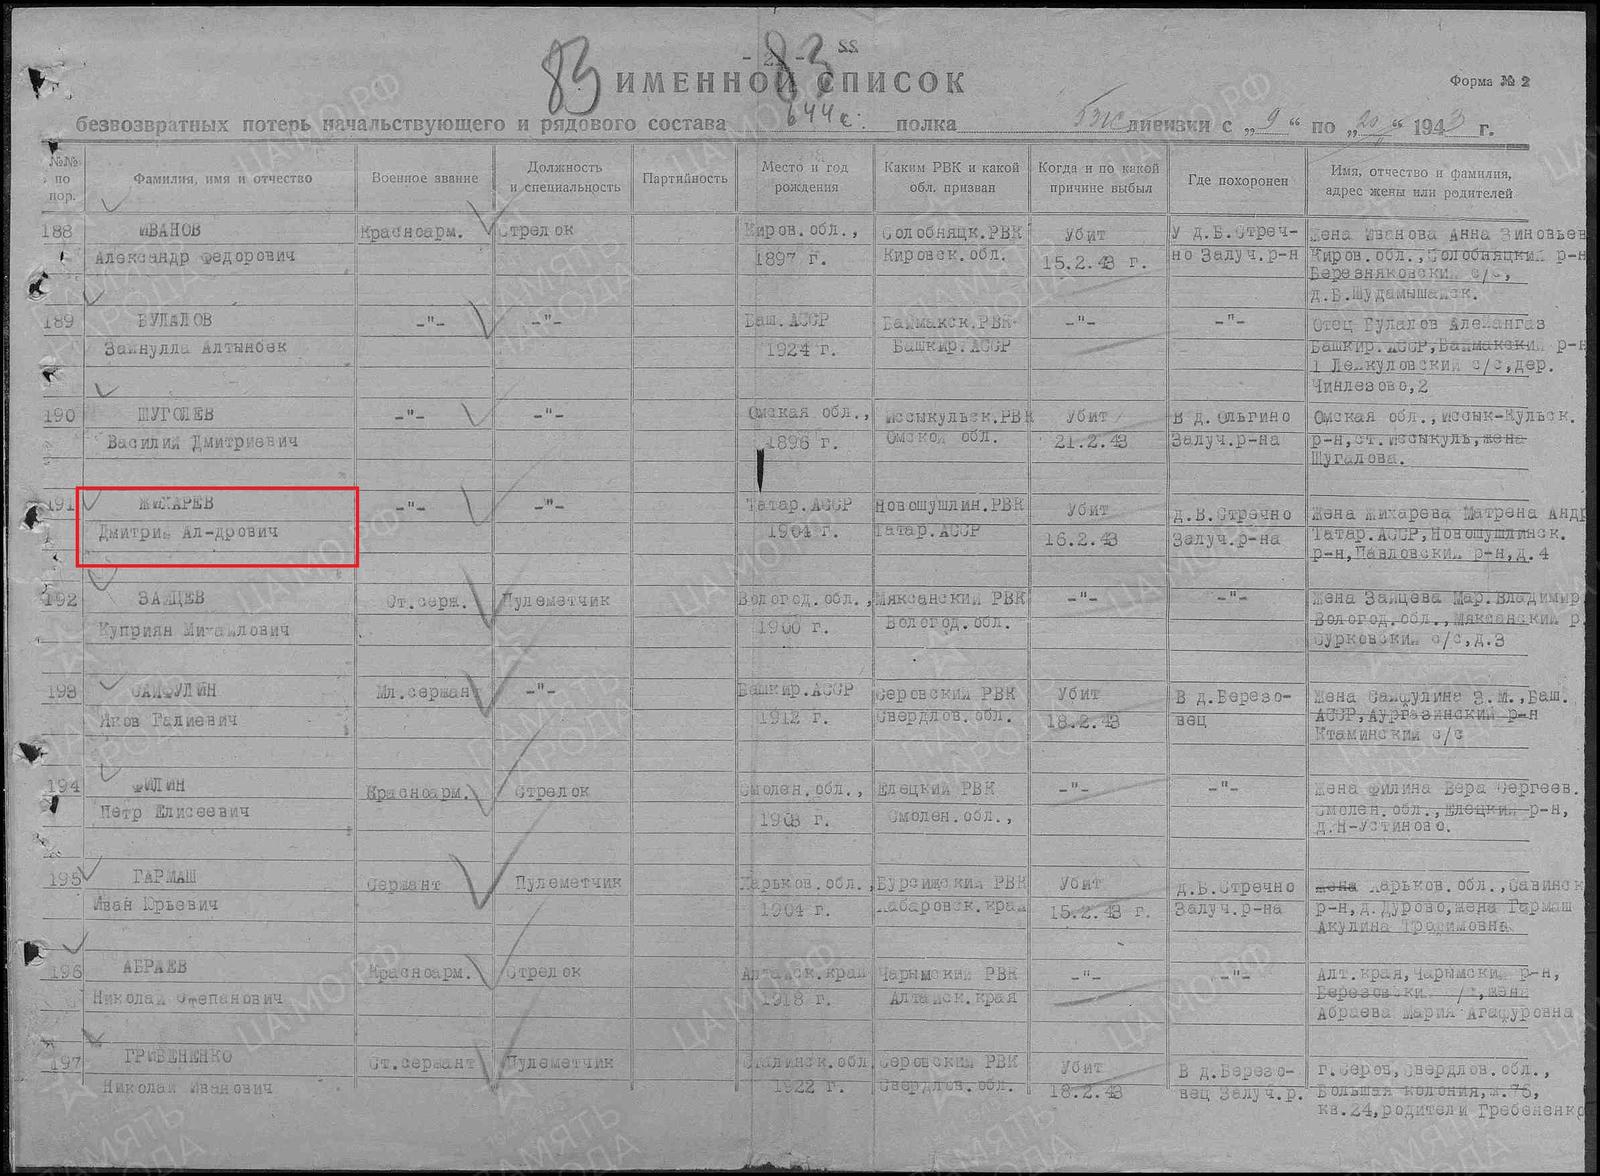 83 - 22 - 83
ИМЕННОЙ СПИСОК
Форма № 2
безвозвратных потерь начальствующего и рядового состава 644 с. полка дивизии с „9“ по „20“ 1943 г.
№№ по пор.
Фамилия, имя и отчество
Военное звание
Должность и специальность
Партийность
Место и год рождения
Каким РВК и какой обл. призван
Когда и по какой причине выбыл
Где похоронен
Имя, отчество и фамилия, адрес жены или родителей
188 ИВАНОВ Красноарм. Стрелок Киров.обл., Солобняцк.РВК Убит У д.В.Стреч- Жена Иванова Анна Зиновьев
Александр Федорович 1897 г. Кировск.обл. 15.2.43 г. но Залуч.р-н Киров.обл.,Солобняцкий р-н
Березняковский с/с,
д.В.Шудамышанск.
189 БУЛАЛОВ -"- -"- Баш.АССР Баймакск.РВК -"- -"- Отец Булалов
Зайнулла Алтынбек 1924 г. Башкир.АССР Башкир.АССР,Баймакский р-н
с/с,дер.
Чинлезово,2
190 ШУГОЛЕВ -"- -"- Омская обл., Иссыкульск.РВК Убит В д.Ольгино Омская обл.,Иссык-Кульск.
Василий Дмитриевич 1896 г. Омской обл. 21.2.43 Залуч.р-на р-н,ст.Иссыкуль,жена
Шугалова.
191 ЖИХАРЕВ -"- -"- Татар.АССР Новошушлин.РВК Убит д.В.Стречно Жена Жихарева Матрена Андр
Дмитрий Ал-дрович 1904 г. Татар.АССР 16.2.43 Залуч.р-на Татар.АССР,Новошушлинск.
р-н,Павловский р-н,д.4
192 ЗАЙЦЕВ Ст.серж. Пулеметчик Вологод.обл., Мяксанский РВК -"- -"- Жена Зайцева Мар.Владимир
Куприян Михайлович 1900 г. Вологод.обл. Вологод.обл.,Мяксанский р
Сурковский с/с,д.3
193 САЙФУЛИН Мл.сержант -"- Башкир.АССР Серовский РВК Убит В д.Березо- Жена Сайфулина З.М.,Баш.
Яков Галиевич 1912 г. Свердлов.обл. 18.2.43 вец АССР,Аургазинский р-н
Ктаминский с/с
194 ФИЛИН Красноарм. Стрелок Смолен.обл., Елецкий РВК -"- -"- Жена Филина Вера Сергеев.
Петр Елисеевич 1903 г. Смолен.обл., Смолен.обл.,Елецкий р-н,
д.Н-Устиново.
195 ГАРМАШ Сержант Пулеметчик Харьков.обл., Бурсийский РВК Убит д.В.Стречно Жена Харьков.обл.,Савинск
Иван Юрьевич 1904 г. Хабаровск.край 15.2.43 г. Залуч.р-на р-н,д.Дурово,жена Гармаш
Акулина Трофимовна
196 АБРАЕВ Красноарм. Стрелок Алтайск.край Чарымский РВК -"- -"- Алт.края,Чарымский р-н,
Николай Степанович 1918 г. Алтайск.края Березовский с/с,жена
Абраева Мария Агафуровна
197 ГРИБЕНЕНКО Ст.сержант Пулеметчик Сталинск.обл Серовский РВК Убит В д.Березо- г.Серов,Свердлов.обл.,
Николай Иванович 1922 г. Свердлов.обл. 18.2.43 вец Залуч.р. Большая колония,ж.76,
кв.24,родители Гребененко
ПАМЯТЬ НАРОДА
ЦАМО.РФ